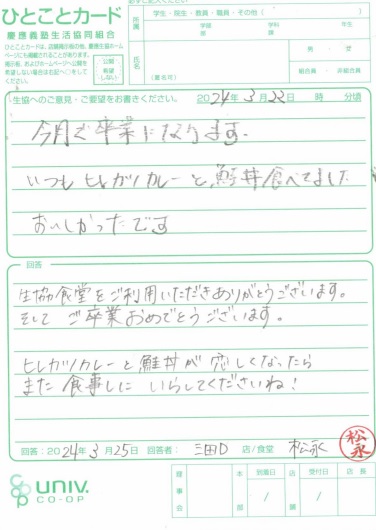 ひとことカード
慶應義塾生活協同組合
ひとことカードは、店舗掲示板の他、慶應生協ホームページにも掲載されることがあります。掲示板、およびホームページへ公開を希望しない場合は右記へ○をしてください。
公開
希望しない
所属
学生・院生・教員・職員・その他（　　）
学部
学科
年生
氏名
（匿名可）
男・女
組合員・非組合員
生協へのご意見・ご要望をお書きください。 2024年3月22日 時 分頃
今月で卒業になります。
いつもヒレカツカレーと、鮭丼食べてました
おいしかったです
回答
生協食堂をご利用いただきありがとうございます。
そして ご卒業おめでとうございます。
ヒレカツカレーと鮭丼が恋しくなったら
また食事しにいらしてくださいね！
回答：2024年3月25日 回答者： 三田D 店/食堂 松永
松永
UNIV.
CO-OP
理事会
本部
到着日
/
店舗
受付日
/
店長